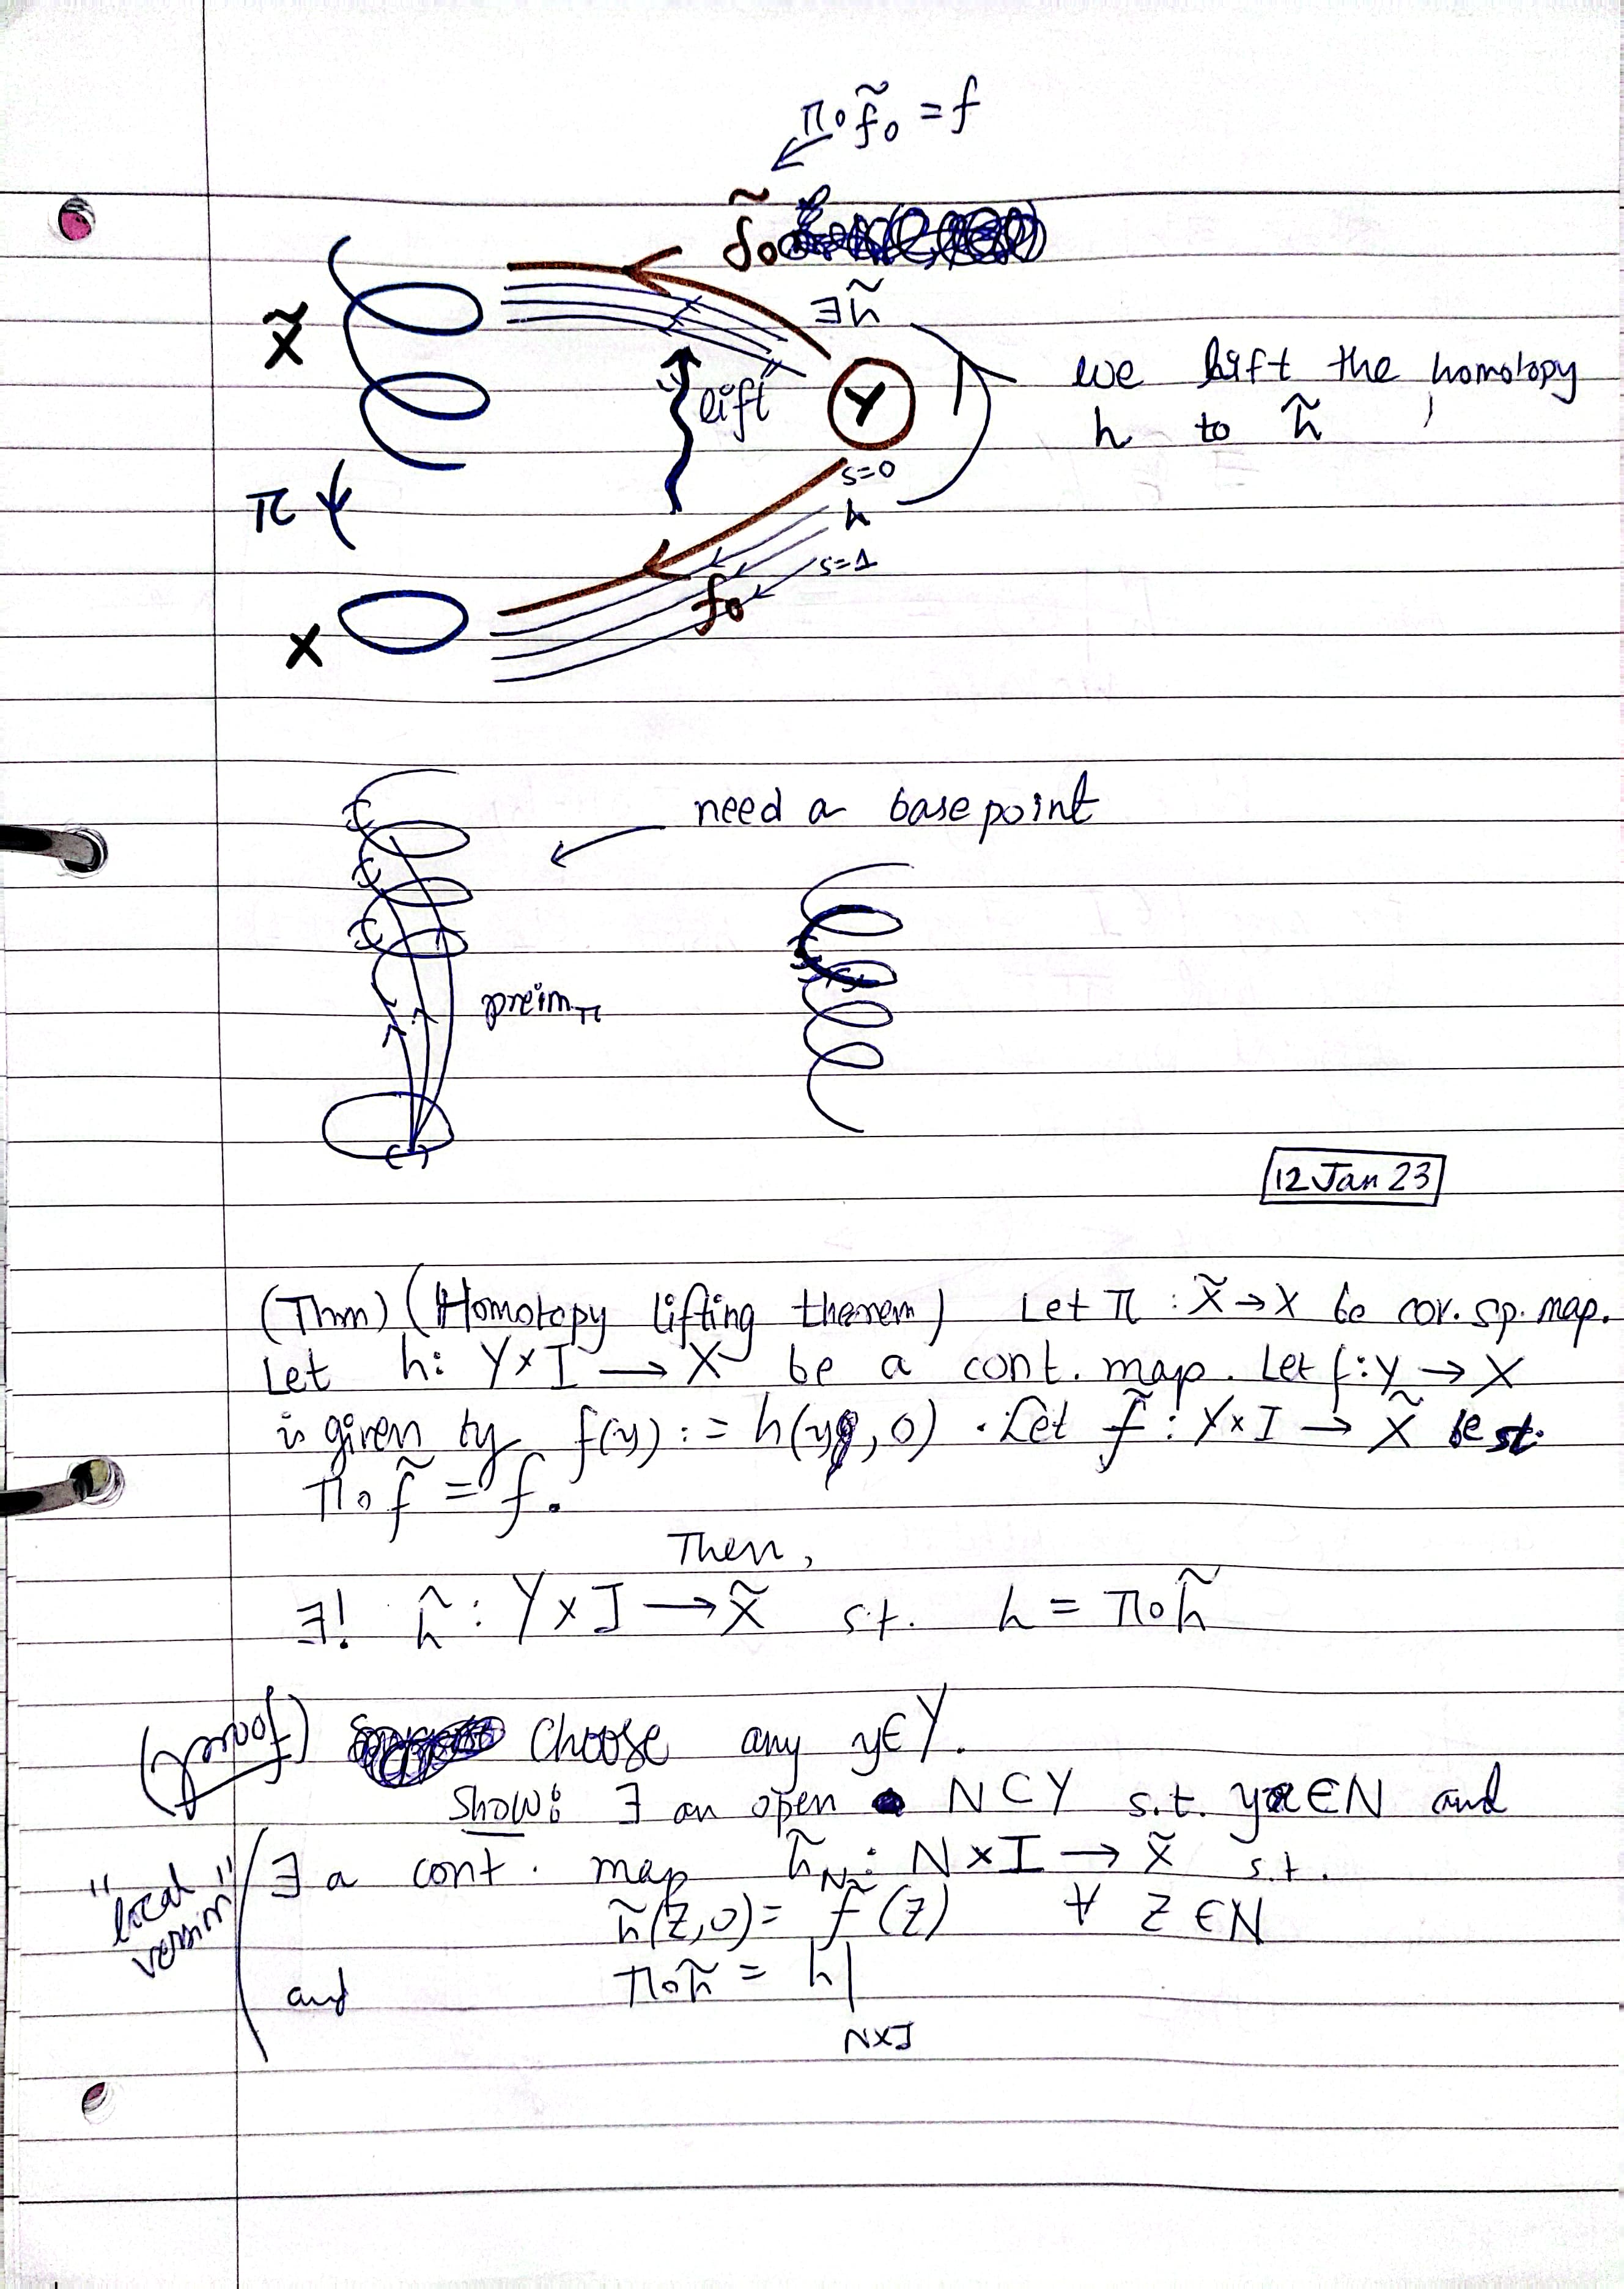 π∘f̃₀ = f
f̃₀
∃h̃
X̃
lift
Y
we lift the homotopy
h to h̃
s=0
π
h
s=1
f₀
X
need a basepoint
preim_π
12 Jan 23
(Thm) (Homotopy lifting therem) Let π : X̃ → X be cov. sp. map.
Let h: Y×I ⟶ X be a cont. map. Let f: Y → X
is given by f(y) := h(y, 0). Let f̃ : Y×I → X̃ be st.
π∘f̃ = f.
Then,
∃! h̃ : Y×I ⟶ X̃ s.t. h = π∘h̃
(proof) Choose any y∈Y.
Show: ∃ an open N⊂Y s.t. y∈N and
∃ a cont. map h̃_N : N×I ⟶ X̃ s.t.
"local version"
h̃(z,0) = f̃(z) ∀ z∈N
and π∘h̃ = h|
N×I